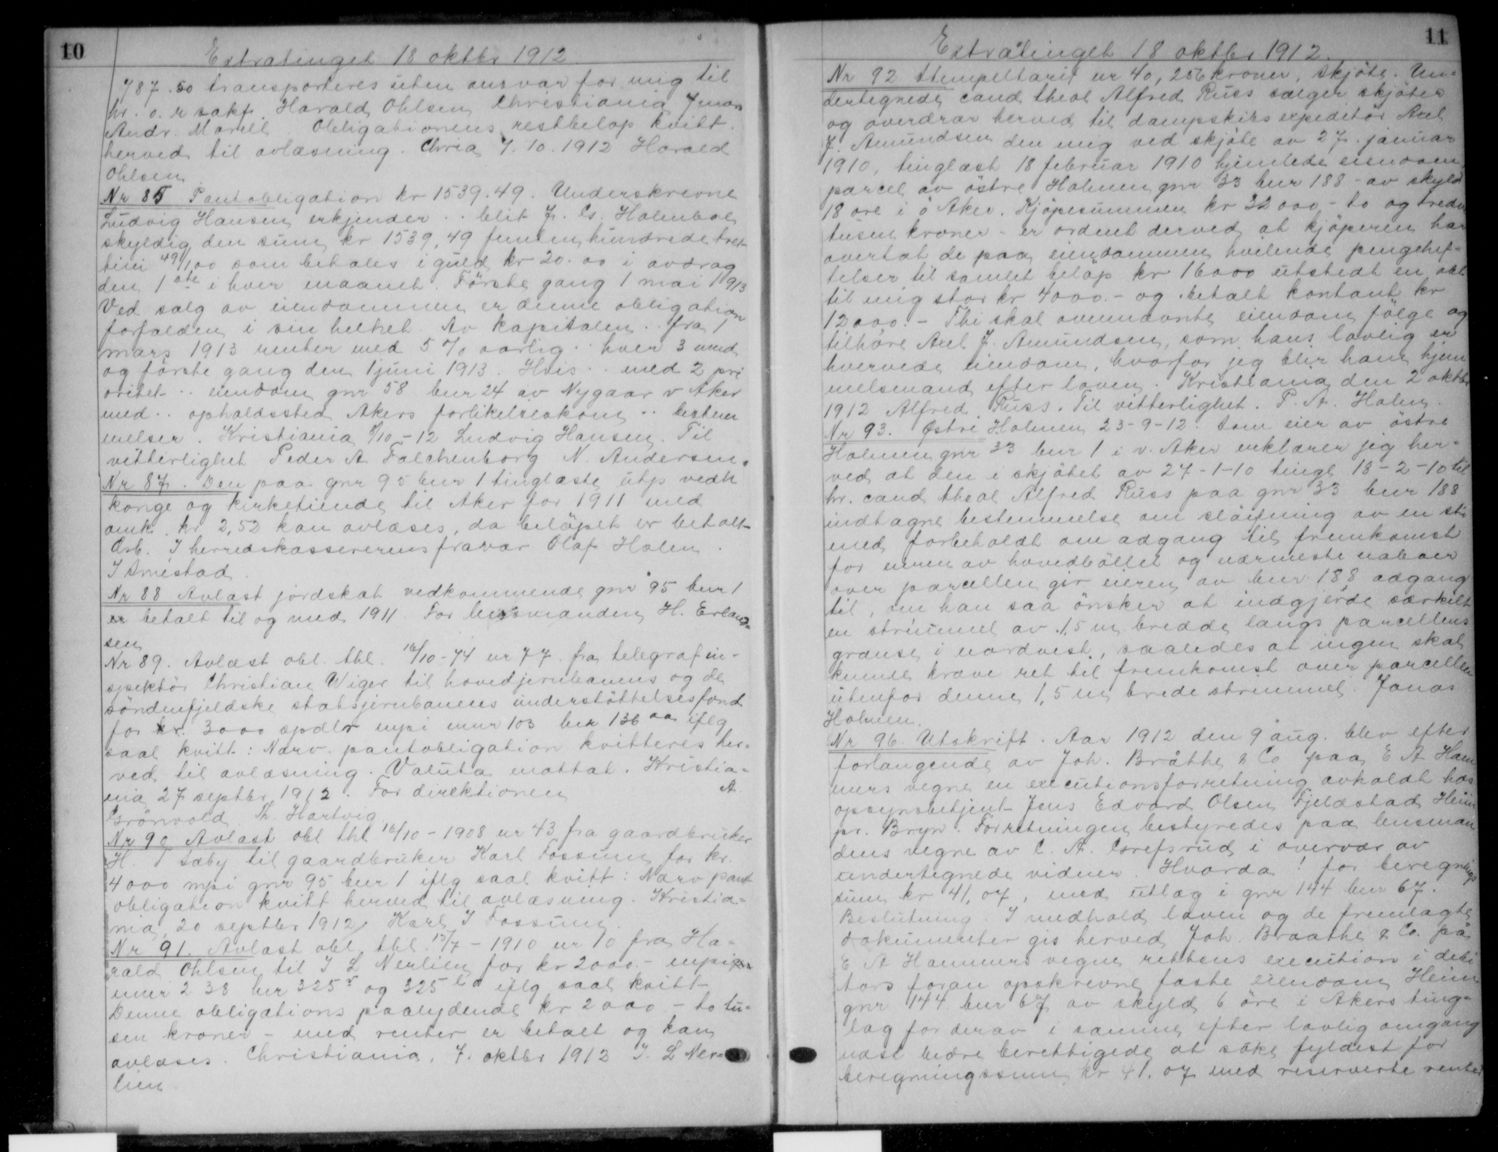 10
Extratinget 18 oktbr 1912
787.50 transporteres uten ansvar for mig til
hr. o. r sakf. Harald Ohlsen Christiania
Andr. Martll Obligationens restbelöp kvitt.
herved til avlæsning. Chria 7.10.1912 Harald
Ohlsen
Nr 85 Pantobligation kr 1539.49. Underskrevne
Ludvig Hansen erkjender .. blit Fr. Cs. Holenboe
skyldig den sum kr 1539,49 femten hundrede tret
tini 49/100 som betales i guld kr 20.00 i avdrag
den 1ste i hver maanet. Förste gang 1 mai 1913
Ved salg av eiendommen er denne obligation
forfalden i sin helhet. Av kapitalen .. fra 1
mars 1913 renter med 5 % aarlig .. hver 3 mnd
og förste gang den 1 juni 1913. Hvis .. med 2 pri
oritet .. eiendom gnr 58 bnr 24 av Nygaar v Aker
med .. opholdssted Akers forlikelseskom .. bestem
melser. Kristiania /10-12 Ludvig Hansen. Til
vitterlighet Peder A Falchenborg N. Andersen.
Nr 87. Den paa gnr 95 bnr 1 tinglæste utp vedk
konge og kirketiende til Aker for 1911 med
omk. kr 2,52 kan avlæses, da belöpet er betalt
Arb. I herredskassererens fravær Olaf Holen.
J Arnestad
Nr 88 Avlæst jordskat vedkommende gnr 95 bnr 1
er betalt til og med 1911 For lensmanden H. Erland
sen
Nr 89. Avlæst obl. thl. 16/10-74 nr 77 fra telegrafin-
spektör Christian Wiger til hovedjernbanens og de
söndenfjeldske statsjernbaners understöttelsesfond
for kr. 3000 spdlr mpi mnr 103 bnr 136 aa iflg
saal kvitt: Nærv. pantobligation kvitteres her-
ved til avlæsning. Valuta mottat. Kristia-
nia 27 septbr 1912. For direktionen A
Grönvold Th. Hartvig
Nr 90 Avlæst obl thl 16/10-1908 nr 43 fra gaardbruker
H. Saby til gaardbruker Karl Fossum for kr.
4000 mpi gnr 95 bnr 1 iflg saal kvitt: Nærv pant
obligation kvitt herved til avlæsning. Kristia-
nia 20 septbr 1912 Karl J Fossum
Nr 91. Avlæst obl thl 15/7-1910 nr 10 fra Ha-
rald Ohlsen til J L Nerlien for kr 2000.- mpi
mnr 238 bnr 325 og 325 iflg saal kvitt
Denne obligations paalydende kr 2000 - to tu-
sen kroner - med renter er betalt og kan
avlæses. Christiania. 7. oktbr 1912 J. L Ner-
lien
11
Extratinget 18 oktbr 1912.
Nr 92 Stempeltarif nr 40, 256 kroner, skjöte. Un-
dertegnede cand theol Alfred Russ sælger skjöter
og overdrar herved til dampskibsexpeditör Axel
J. Amundsen den mig ved skjöte av 27. januar
1910, tinglæst 18 februar 1910 hjemlede eiendom
parcel av östre Holmen gnr 33 bnr 188 av skyld
18 öre i ö Aker. Kjöpesummen kr 32000 - to og tredve
tusen kroner - er ordnet derved at kjöperen har
overtat de paa eiendommen hvilende pengehef-
telser til samlet belöp kr 16000 utstedt en obl
til mig stor kr 4000.- og betalt kontant kr
12000.- Thi skal ovennævnte eiendom fölge og
tilhöre Axel J. Amundsen, som hans lovlig er
hvervede eiendom, hvorfor jeg blir hans hjem
melsmand efter loven. Kristiania den 2 oktbr
1912 Alfred Russ. Til vitterlighet. P. A. Holm.
Nr 93. Østre Holmen 23-9-12. Som eier av östre
Holmen gnr 33 bnr 1 i v. Aker erklærer jeg her-
ved at den i skjötet av 27-1-10 tingl 18-2-10 til
hr. cand theol Alfred Russ paa gnr 33 bnr 188
indtagne bestemmelse om slöifning av en sti
med forbeholdt om adgang til fremkomst
for eieren av hovedböllet og nærmeste naboer
over parcellen gir eieren av bnr 188 adgang
til, om han saa önsker at indgjerde særkilt
en strimmel av 1,5 m bredde langs parcellens
grænse i nordvest, saaledes at ingen skal
kunne kræve ret til fremkomst over parcellen
utenfor denne 1,5 m brede strimmel. Jonas
Holmen.
Nr 96 Utskrift. Aar 1912 den 9 aug. blev efter
forlangende av Joh. Bråthe & Co paa E A Ham
mers vegne en executionsforretning avholdt hos
opsynsbetjent Jens Edvard Olsen Fjeldstad Heim
pr. Bryn. Forretningen bestyredes paa lensman
dens vegne av C. A. Corefsrud i overvær av
undertegnede vidner. Hvorda! for beregnings
sum kr 41,07, med utlæg i gnr 144 bnr 67.
Beslutning. I medhold loven og de fremlagte
dokumenter gis herved Joh. Braathe & Co på
E A Hammers vegne rettens execution i debi
tors foran opskrevne faste eiendom Heim
gnr 144 bnr 67 av skyld 6 öre i Akers ting-
lag for derav i samme efter lovlig omgang
næst bedre berettigede at söke fyldest for
beregningssum kr 41.07 med reserverte renter